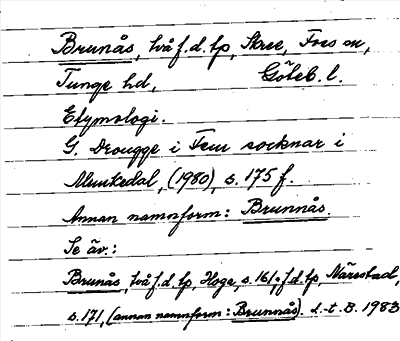 Brunås, två f.d. tp, Skree, Foss sn,
Tunge hd, Göteb. l.
Etymologi.
G. Drougge i Fem socknar i
Munkedal, (1980), s. 175 f.
Annan namnform: Brunnås.
Se äv.:
Brunås, två f.d. tp, Hoge, s. 161; f.d. tp, Märestad,
s. 171, (annan namnform: Brunnås). L-t. B. 1983